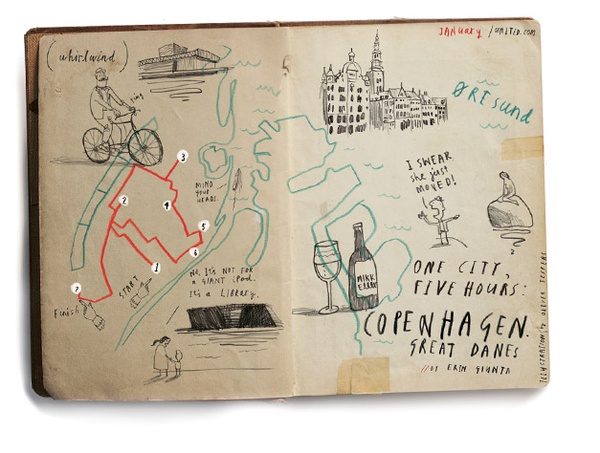 (whirlwind)
ring
3
MIND
YOUR
HEADS.
2
4
5
6
1
START
7
Finish
No, IT'S NOT FOR
a GIANT iPod.
It's a Library.
JANUARY / UNITED.COM
ØRESUND
I SWEAR
she just
MOVED!
MIKK
ELLER
ONE CITY,
FIVE HOURS:
COPENHAGEN.
GREAT DANES
//BY ERIN GIUNTA
ILLUSTRATION by OLIVER JEFFERS